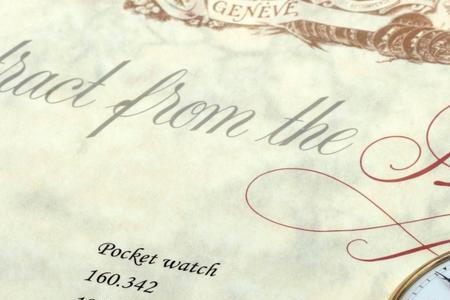 GENÈVE
tract from the
Pocket watch
160.342